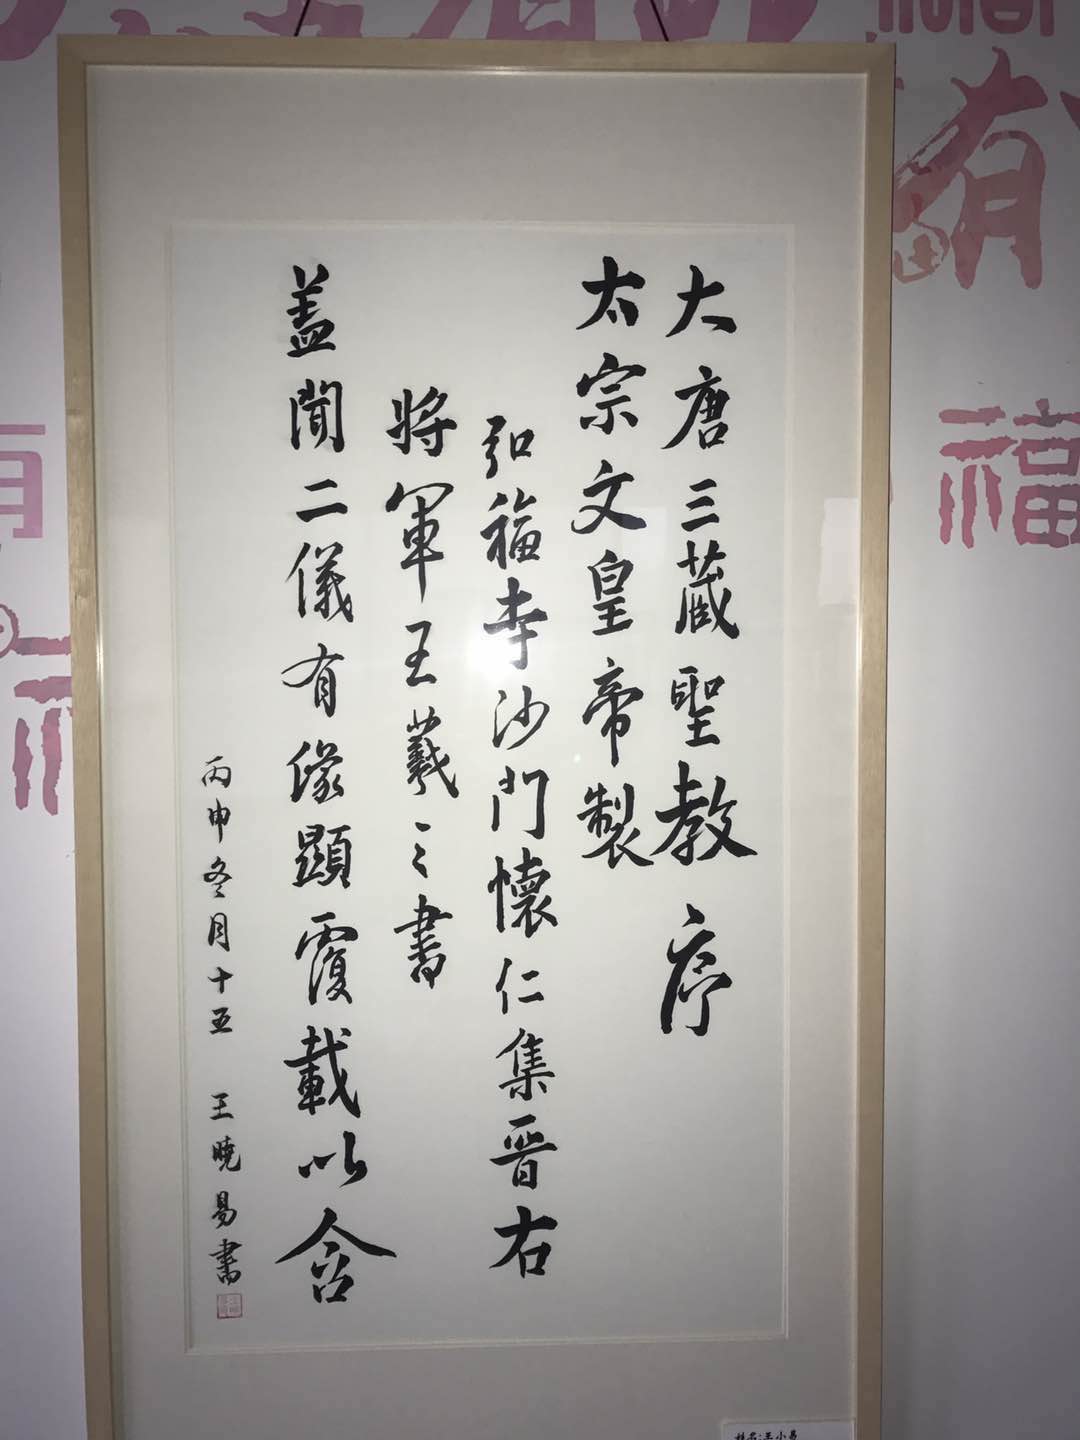 大唐三藏聖教序
太宗文皇帝製
弘福寺沙門懷仁集晋右
將軍王羲之書
盖聞二儀有像顯覆載以含
丙申冬月十五 王曉易書
姓名:王小易
有
福
有